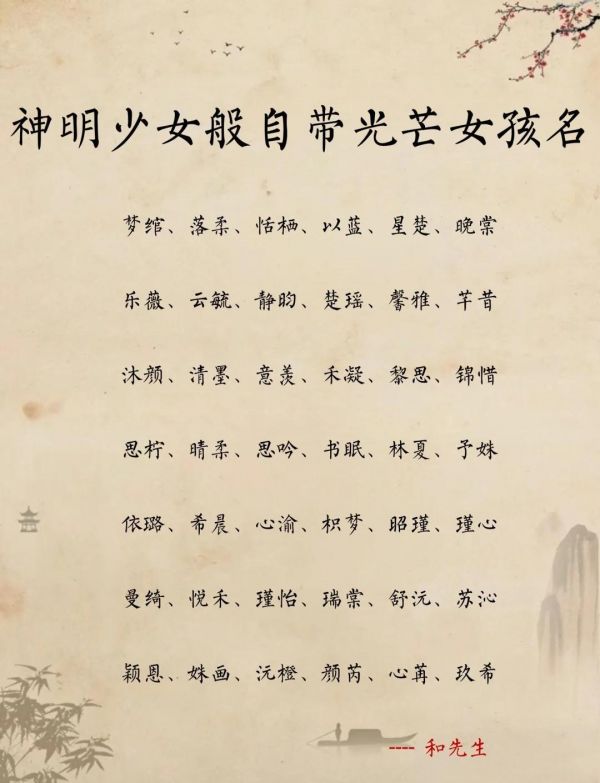 神明少女般自带光芒女孩名
梦绾、落柔、恬栖、以蓝、星楚、晚棠
乐薇、云毓、静昀、楚瑶、馨雅、芊昔
沐颜、清墨、意羡、禾凝、黎思、锦惜
思柠、晴柔、思吟、书眠、林夏、予姝
依璐、希晨、心渝、枳梦、昭瑾、瑾心
曼绮、悦禾、瑾怡、瑞棠、舒沅、苏沁
颖恩、姝画、沅橙、颜芮、心苒、玖希
---- 和先生